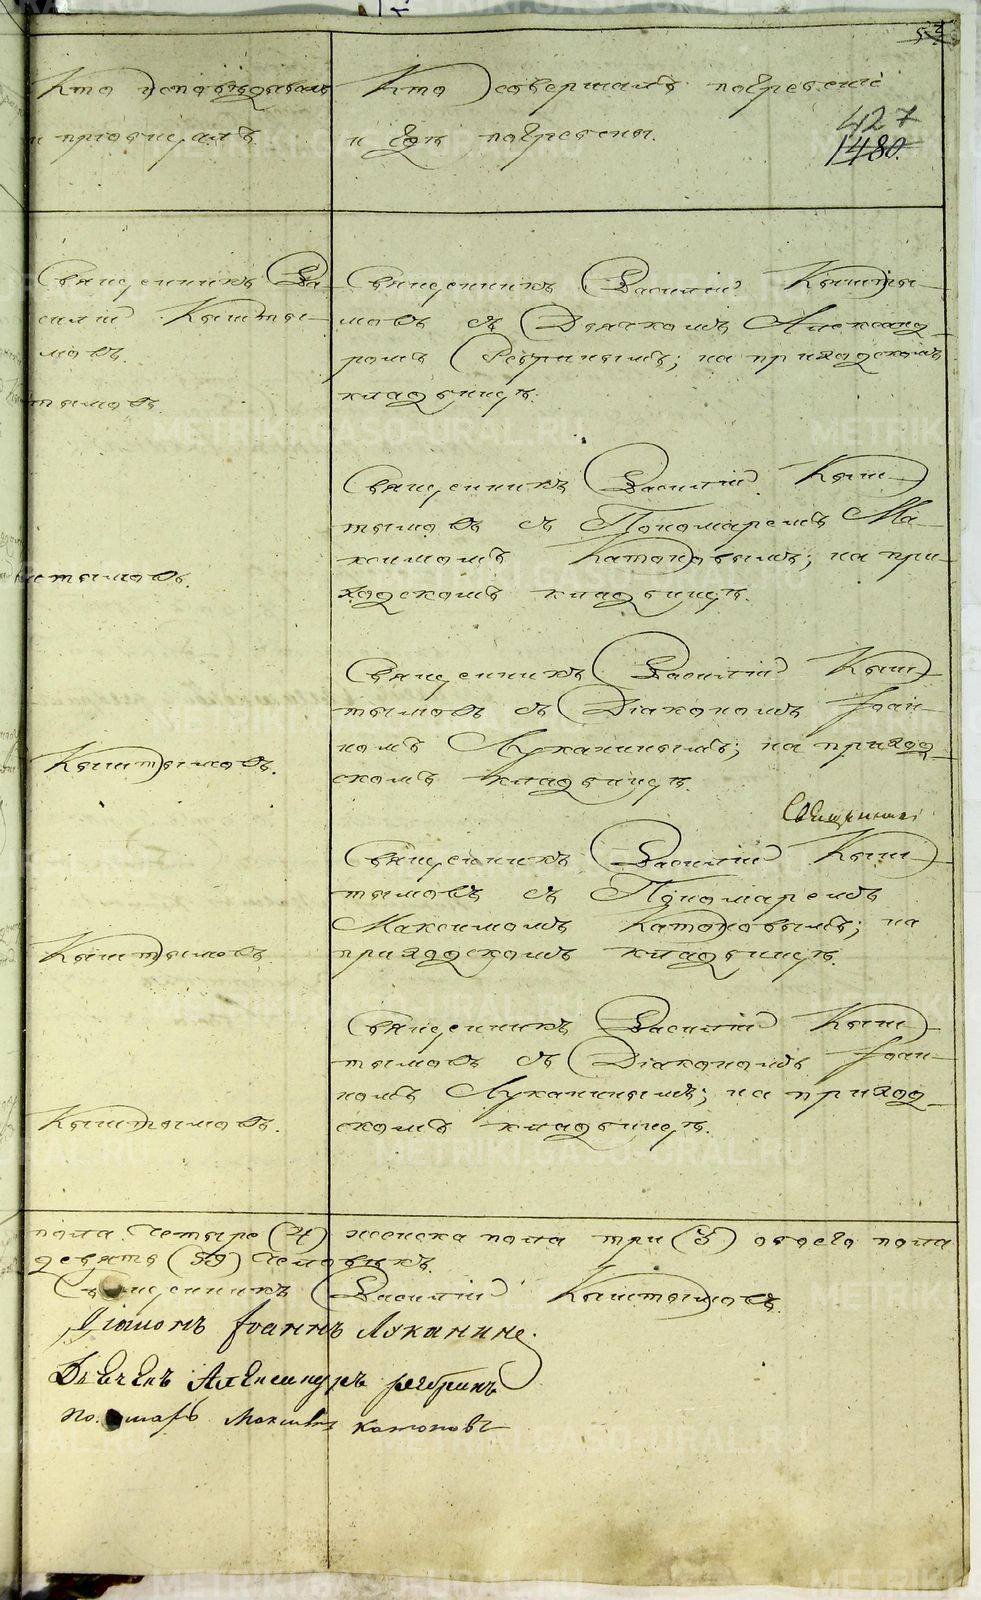 Кто исповѣдывалъ
и пріобщалъ.
Кто совершалъ погребеніе
и гдѣ погребены.
427
1480.
Священникъ Ва-
силій Кышты-
мовъ.
тымовъ.
Священникъ Василій Кышты-
мовъ съ Дьячкомъ Александ-
ромъ Ребринымъ; на приходскомъ
кладбищѣ.
Священникъ Василій Кыш-
тымовъ съ Пономаремъ Ма-
ксимомъ Катоновымъ; на при-
ходскомъ кладбищѣ.
штымовъ.
Священникъ Василій Кыш-
тымовъ съ Діакономъ Іоан-
номъ Луканинымъ; на приход-
скомъ кладбищѣ.
Кыштымовъ.
Священникъ Василій Кыш-
тымовъ съ Пономаремъ
Максимомъ Катоновымъ; на
приходскомъ кладбищѣ.
Кыштымовъ.
Священникъ Василій Кыш-
тымовъ съ Діакономъ Іоан-
номъ Луканинымъ; на приход-
скомъ кладбищѣ.
Кыштымовъ.
пола четыре (4) женска пола три (3) обоего пола
девять (39) человѣкъ.
Священникъ Василій Кыштымовъ.
Діаконъ Іоаннъ Луканинъ.
Дьячекъ Александръ Ребринъ
Пономарь Максимъ Катоновъ
METRIKI.GASO-URAL.RU